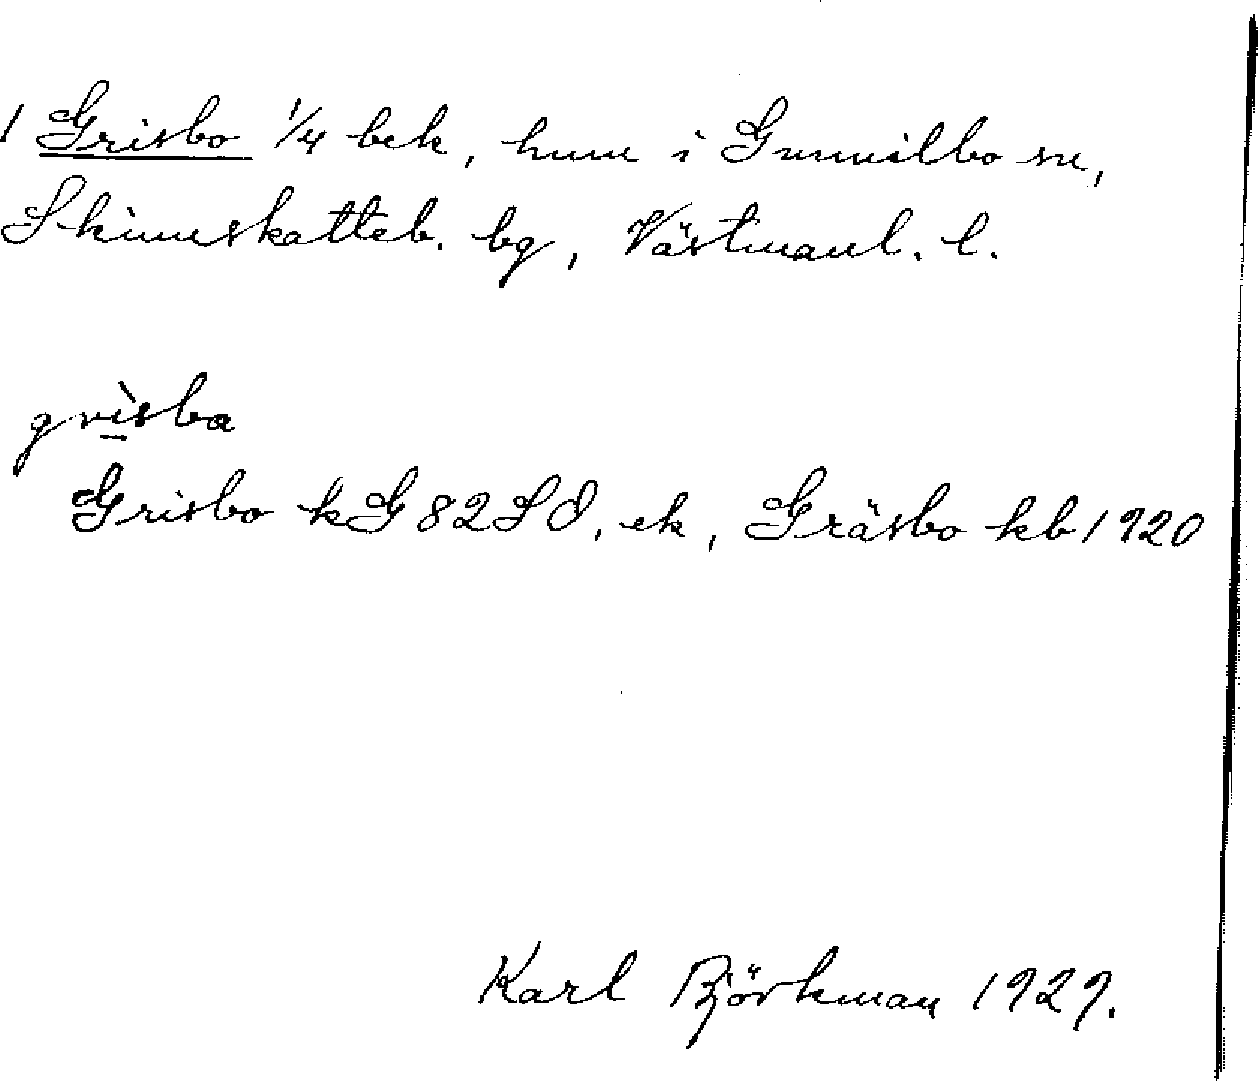 1 Grisbo 1/4 bek, hmn i Gunnilbo sn,
Skinnskatteb. bg, Västmanl. l.
grìsba
Grisbo kG 82SO, ek, Gräsbo kb 1920
Karl Björkman 1929.